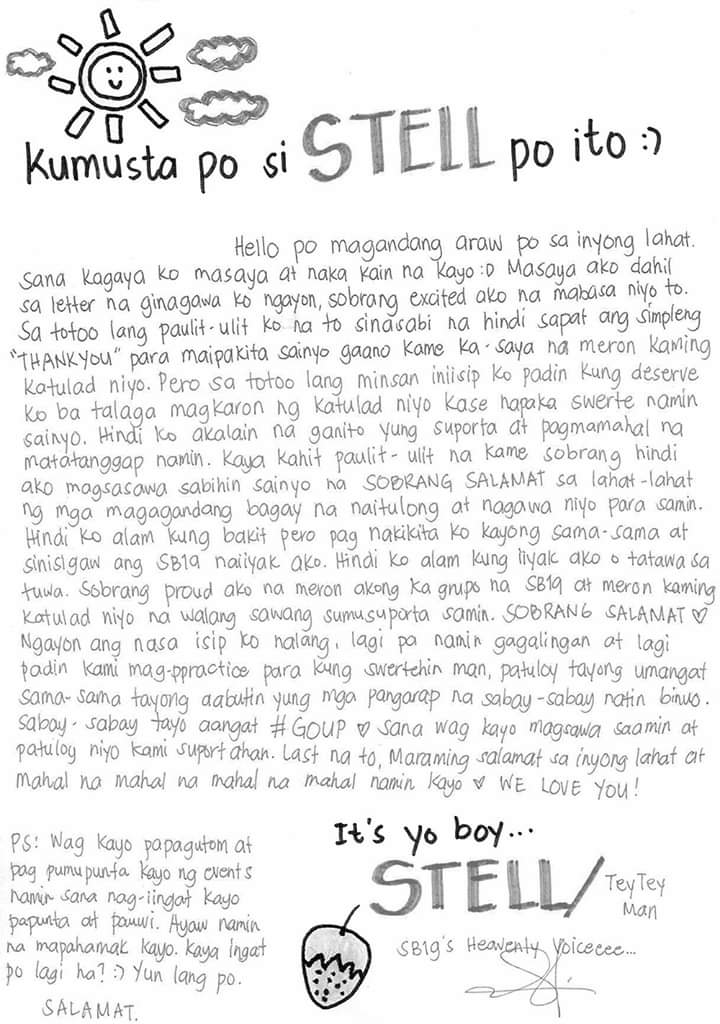 Kumusta po si STELL po ito :)
Hello po magandang araw po sa inyong lahat.
Sana kagaya ko masaya at naka kain na kayo :D Masaya ako dahil
sa letter na ginagawa ko ngayon, sobrang excited ako na mabasa niyo to.
Sa totoo lang paulit-ulit ko na to sinasabi na hindi sapat ang simpleng
"THANKYOU" para maipakita sainyo gaano kame ka-saya na meron kaming
katulad niyo. Pero sa totoo lang minsan iniisip ko padin kung deserve
ko ba talaga magkaron ng katulad niyo kase napaka swerte namin
sainyo. Hindi ko akalain na ganito yung suporta at pagmamahal na
matatanggap namin. Kaya kahit paulit-ulit na kame sobrang hindi
ako magsasawa sabihin sainyo na SOBRANG SALAMAT sa lahat-lahat
ng mga magagandang bagay na naitulong at nagawa niyo para samin.
Hindi ko alam kung bakit pero pag nakikita ko kayong sama-sama at
sinisigaw ang SB19 naiiyak ako. Hindi ko alam kung iiyak ako o tatawa sa
tuwa. Sobrang proud ako na meron akong ka grupo na SB19 at meron kaming
katulad niyo na walang sawang sumusuporta samin. SOBRANG SALAMAT ♡
Ngayon ang nasa isip ko nalang, lagi pa namin gagalingan at lagi
padin kami mag-ppractice para kung swertehin man, patuloy tayong umangat
sama-sama tayong aabutin yung mga pangarap na sabay-sabay natin binuo.
Sabay-sabay tayo aangat #GOUP ♡ sana wag kayo magsawa saamin at
patuloy niyo kami suportahan. Last na to, Maraming salamat sa inyong lahat at
mahal na mahal na mahal na mahal namin kayo ♡ WE LOVE YOU!
PS: Wag kayo papagutom at
pag pumupunta kayo ng events
namin sana nag-iingat kayo
papunta at pauwi. Ayaw namin
na mapahamak kayo. kaya ingat
po lagi ha? :) Yun lang po.
SALAMAT.
It's yo boy...
STELL/ TeyTey
Man
SB19's Heavenly Voiceeee...